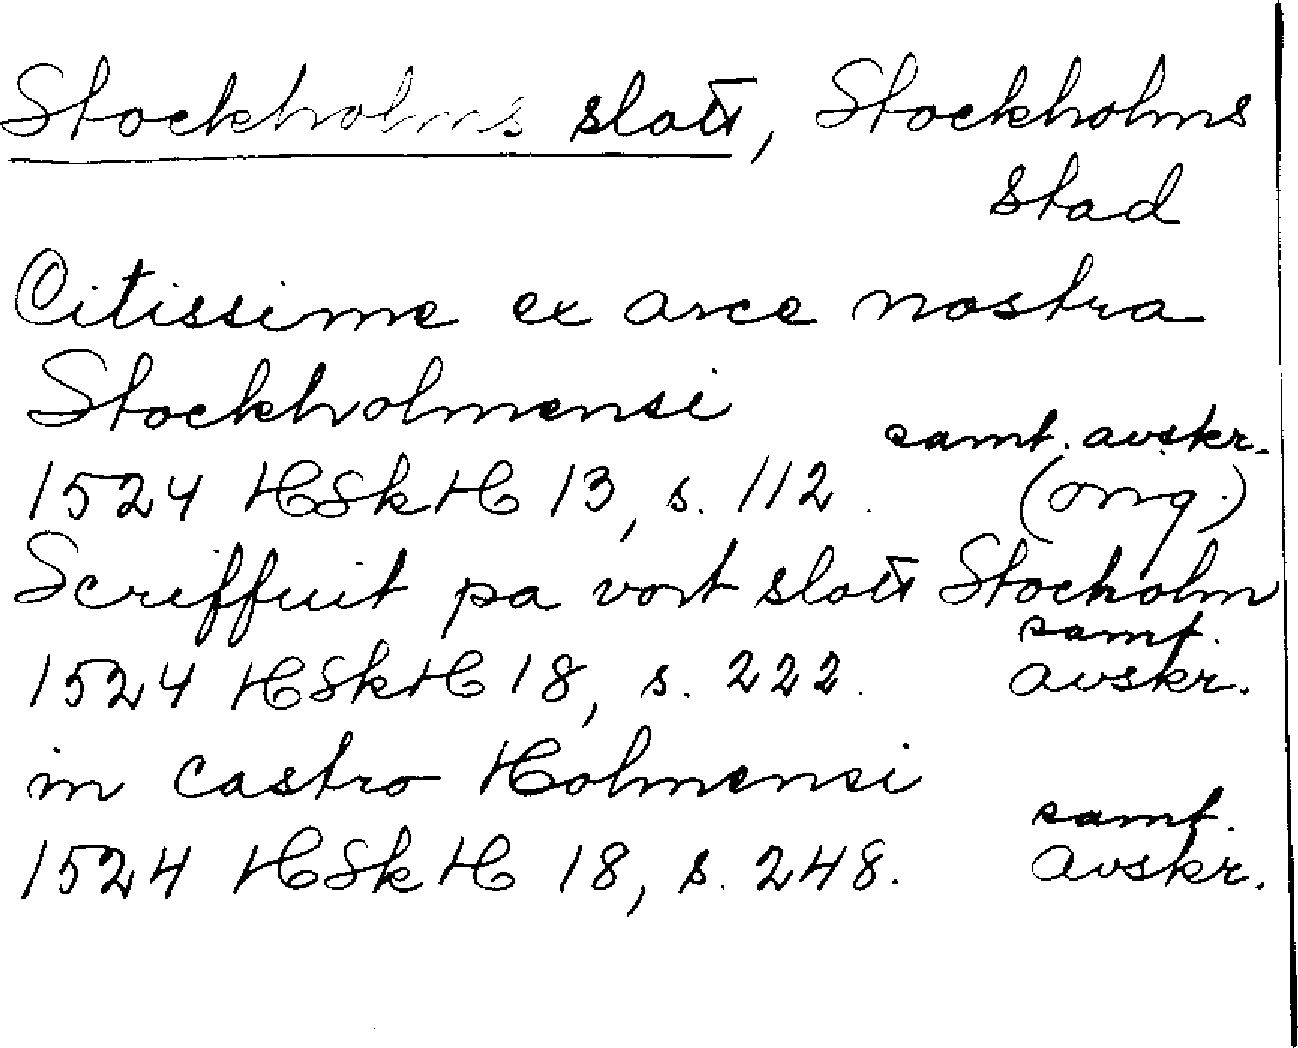 Stockholms slott, Stockholms
stad
Citissime ex arce nostra
Stockholmensi
samt. avskr.
1524 HSkH 13, s. 112. (orig.)
Scriffuit pa vort slott Stocholm
samt.
1524 HSkH 18, s. 222. avskr.
in castro Holmensi
samt.
1524 HSkH 18, s. 248. avskr.